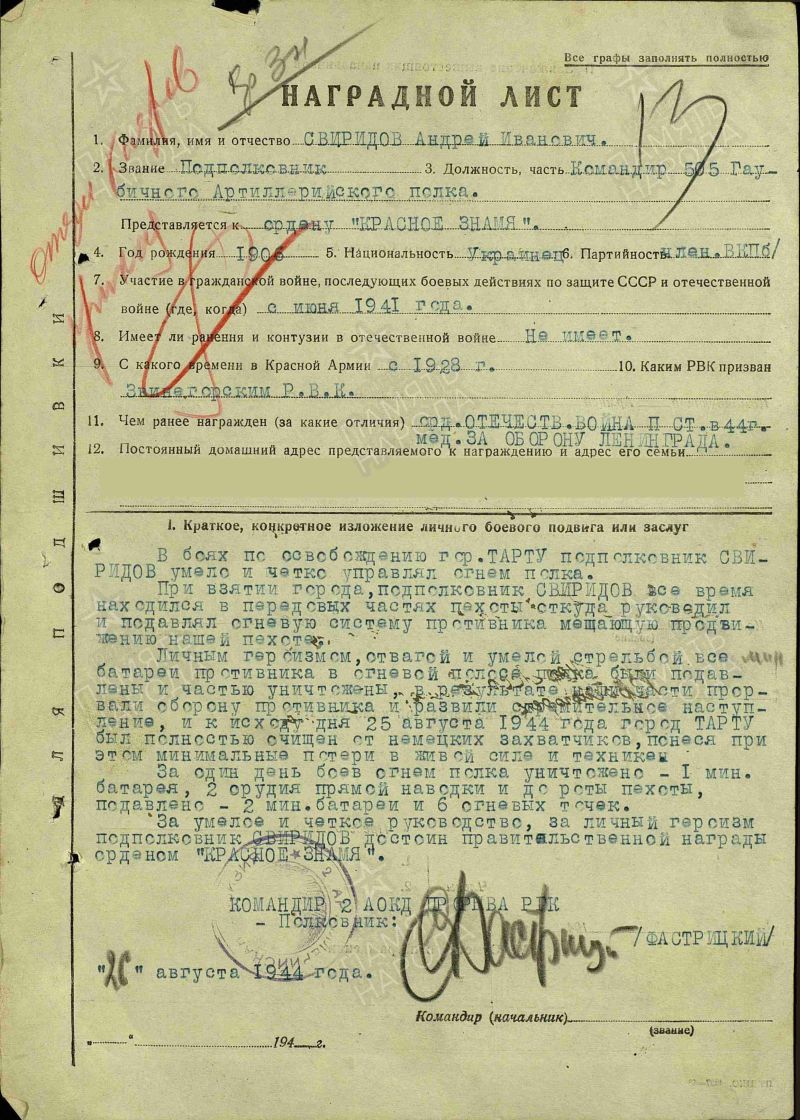 Все графы заполнять полностью
НАГРАДНОЙ ЛИСТ
13
1. Фамилия, имя и отчество СВИРИДОВ Андрей Иванович.
2. Звание Подполковник 3. Должность, часть Командир 505 Гау-
бичного Артиллерийского полка.
Представляется к ордену "КРАСНОЕ ЗНАМЯ".
4. Год рождения 1906 5. Национальность Украинец 6. Партийность член.ВКПб/
7. Участие в гражданской войне, последующих боевых действиях по защите СССР и отечественной
войне (где, когда) с июня 1941 года.
8. Имеет ли ранения и контузии в отечественной войне Не имеет.
9. С какого времени в Красной Армии с 1928 г. 10. Каким РВК призван
Звинагорским Р.В.К.
11. Чем ранее награжден (за какие отличия) орд.ОТЕЧЕСТВ.ВОЙНА П СТ.в 44г.
мед.ЗА ОБОРОНУ ЛЕНИНГРАДА.
12. Постоянный домашний адрес представляемого к награждению и адрес его семьи
1. Краткое, конкретное изложение личного боевого подвига или заслуг
В боях по освобождению гор.ТАРТУ подполковник СВИ-
РИДОВ умело и четко управлял огнем полка.
При взятии города,подполковник СВИРИДОВ все время
находился в передовых частях пехоты откуда руководил
и подавлял огневую систему противника мешающую продви-
жению нашей пехоте.
Личным героизмом,отвагой и умелой стрельбой все мин
батареи противника в огневой полосе полка были подав-
лены и частью уничтожены, в результате части прор-
вали оборону противника и развили стремительное наступ-
ление, и к исходу дня 25 августа 1944 года город ТАРТУ
был полностью очищен от немецких захватчиков,понеся при
этом минимальные потери в живой силе и технике
За один день боев огнем полка уничтожено - 1 мин.
батарея, 2 орудия прямой наводки и до роты пехоты,
подавлено - 2 мин.батареи и 6 огневых точек.
За умелое и четкое руководство, за личный героизм
подполковник СВИРИДОВ достоин правительственной награды
орденом "КРАСНОЕ ЗНАМЯ".
КОМАНДИР 2 АОКД ПРОРЫВА РГК
- Полковник: /ФАСТРИЦКИЙ/
"26" августа 1944 года.
Командир (начальник)
(звание)
" " 194 г.
ДЛЯ ПОДШИВКИ